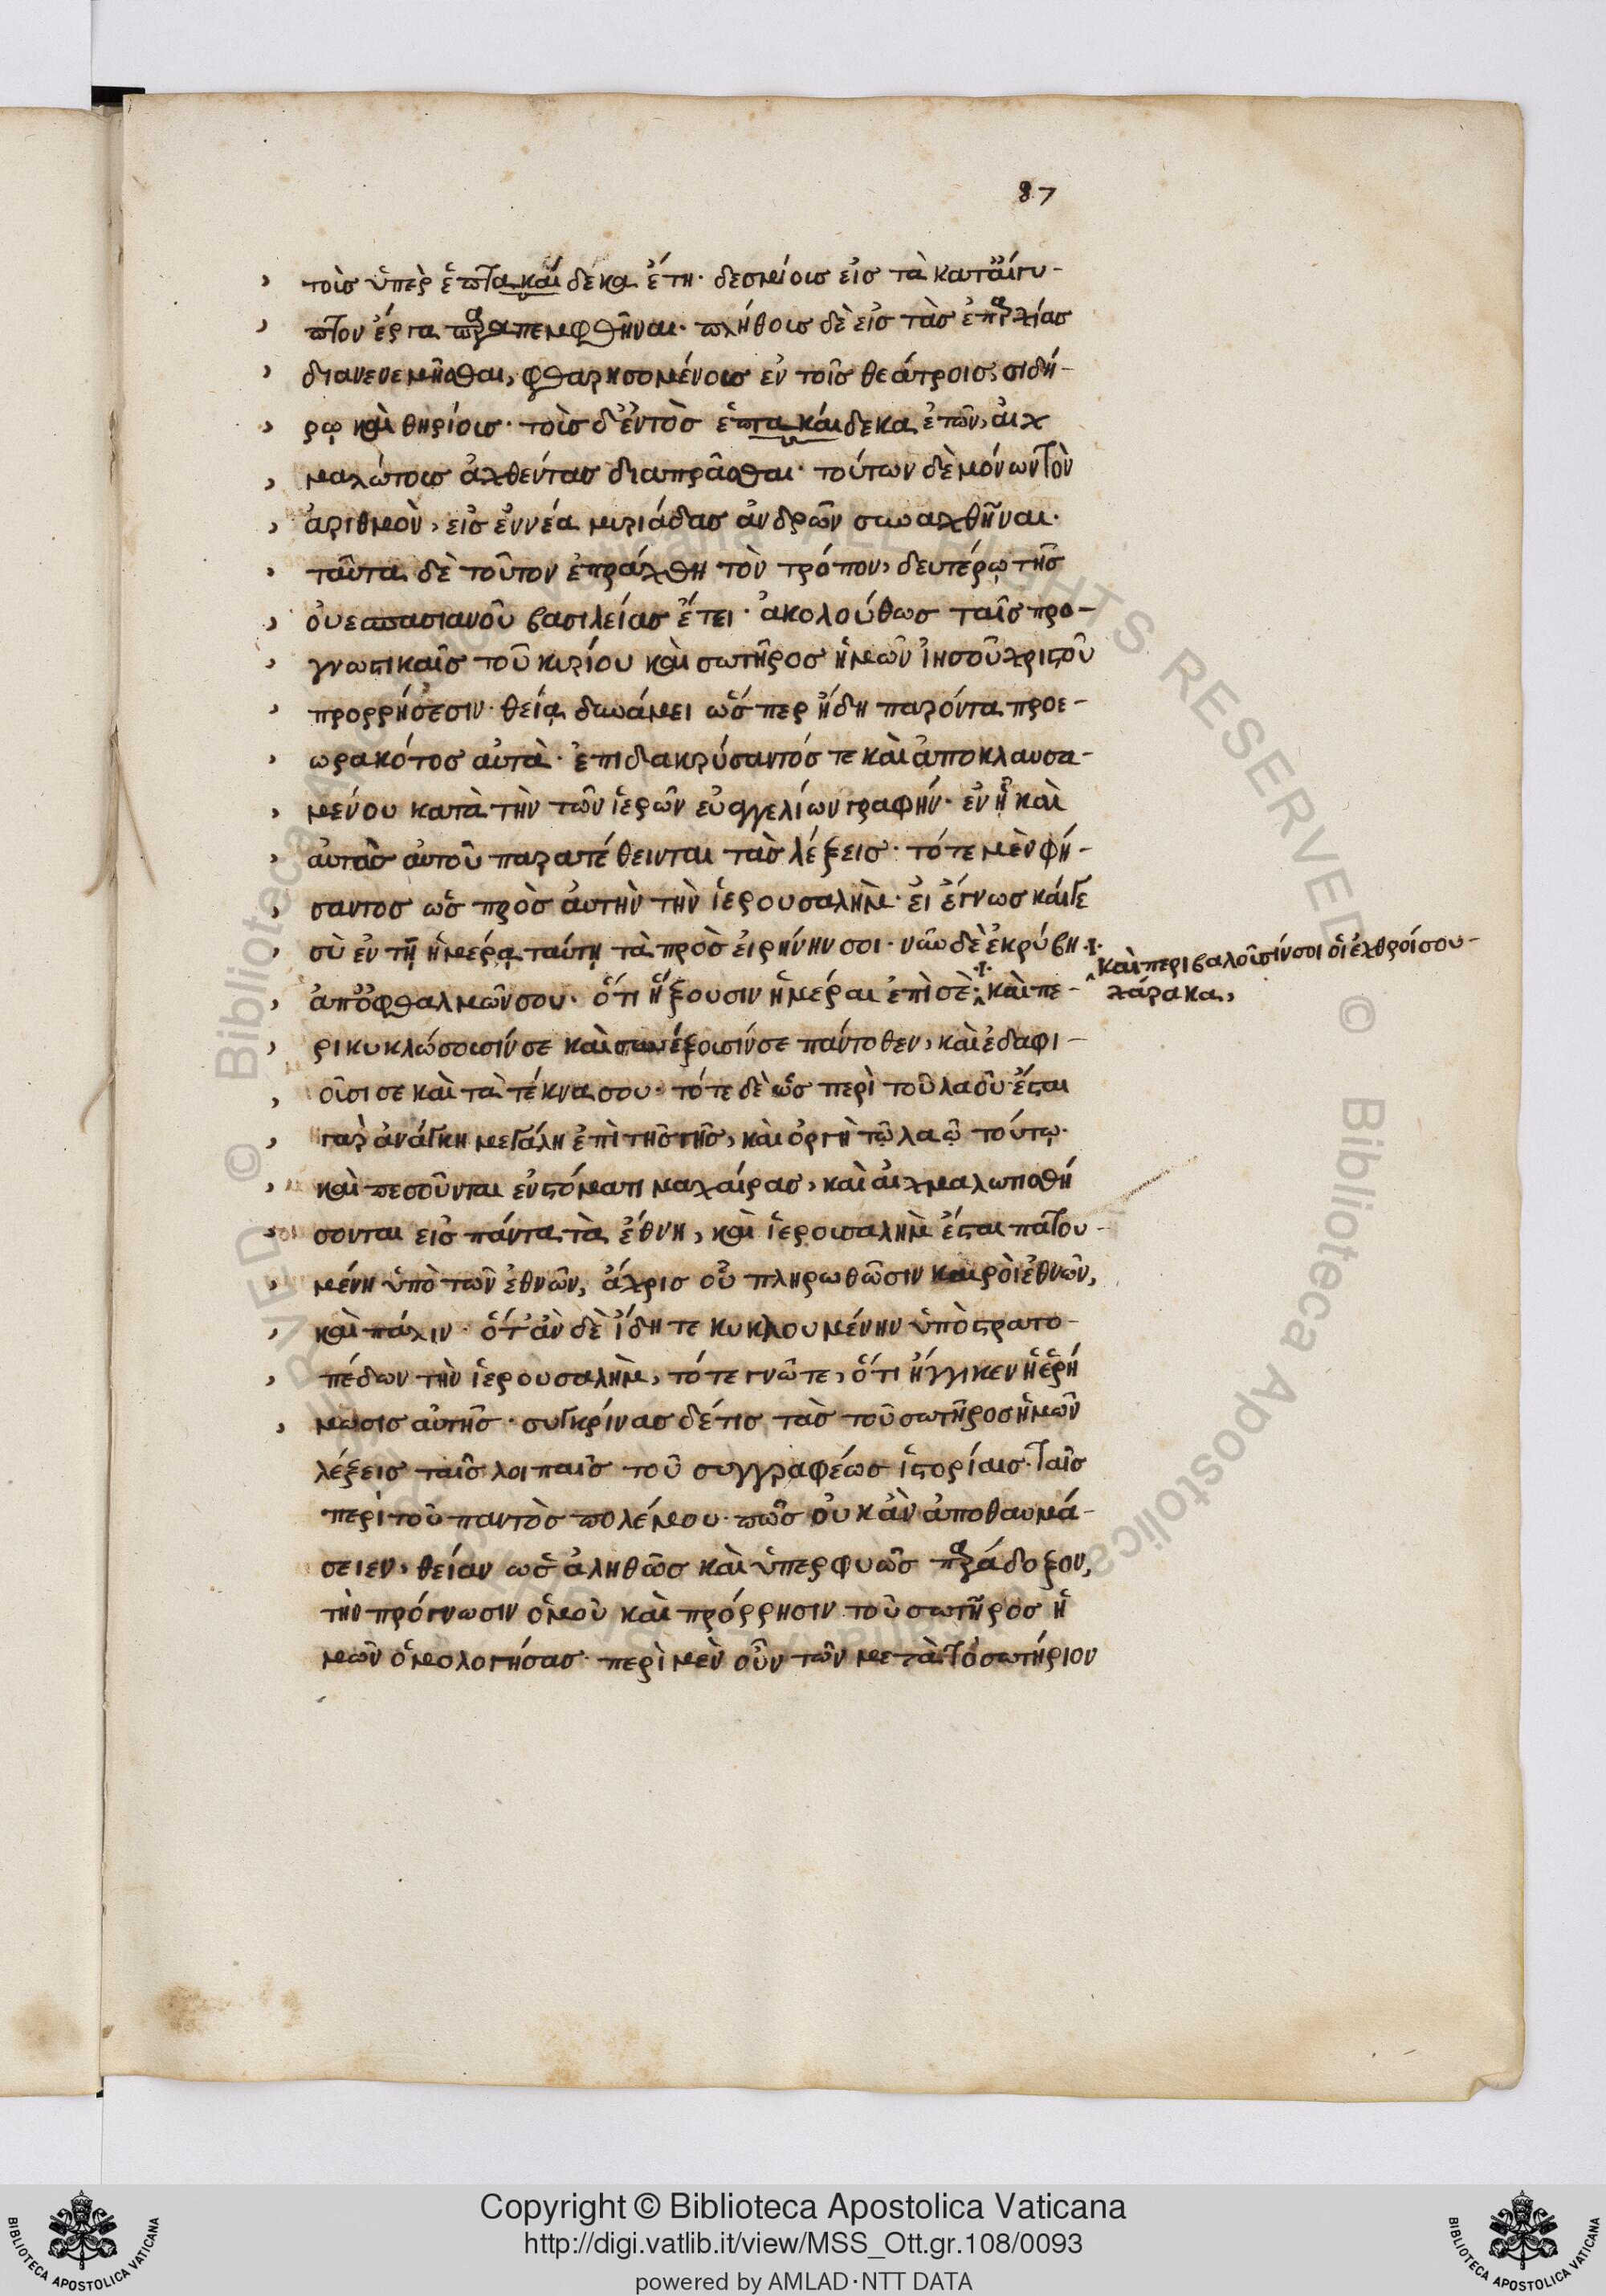 87
τοὺς ὑπὲρ ἑπτακαίδεκα ἔτη· δεσμίους εἰς τὰ κατ' αἴγυ-
πτον ἔργα παραπεμφθῆναι· πλήθους δὲ εἰς τὰς ἐπαρχίας
διανενεμῆσθαι, φθαρησομένους ἐν τοῖς θεάτροις, σιδή-
ρῳ καὶ θηρίοις· τοὺς δ' ἐντὸς ἑπτακαίδεκα ἐτῶν, αἰχ
μαλώτους ἀχθέντας διαπρᾶσθαι· τούτων δὲ μόνων τὸν
ἀριθμὸν, εἰς ἐννέα μυριάδας ἀνδρῶν συναχθῆναι·
ταῦτα δὲ τοῦτον ἐπράχθη τὸν τρόπον, δευτέρῳ τῆς
οὐεσπασιανοῦ βασιλείας ἔτει· ἀκολούθως ταῖς προ-
γνωστικαῖς τοῦ κυρίου καὶ σωτῆρος ἡμῶν ἰησοῦ χριστοῦ
προρρήσεσιν· θείᾳ δυνάμει ὥσπερ ἤδη παρόντα προε-
ωρακότος αὐτὰ· ἐπιδακρύσαντός τε καὶ ἀποκλαυσα-
μένου κατὰ τὴν τῶν ἱερῶν εὐαγγελίων γραφήν· ἐν ᾗ καὶ
αὐτὰς αὐτοῦ παρατέθεινται τὰς λέξεις· τότε μὲν φή-
σαντος ὡς πρὸς αὐτὴν τὴν ἱερουσαλὴμ· εἰ ἔγνως καίγε
σὺ ἐν τῇ ἡμέρᾳ ταύτῃ τὰ πρὸς εἰρήνην σοι· νῦν δὲ ἐκρύβη
ἀπὸ ὀφθαλμῶν σου· ὅτι ἥξουσιν ἡμέραι ἐπὶ σὲ· καὶ πε-
καὶ περιβαλοῦσίν σοι οἱ ἐχθροί σου-
χάρακα,
ρικυκλώσουσίν σε καὶ συνέξουσίν σε πάντοθεν, καὶ ἐδαφι-
οῦσί σε καὶ τὰ τέκνα σου· τότε δὲ ὡς περὶ τοῦ λαοῦ· ἔσται
γαρ ἀνάγκη μεγάλη ἐπὶ τῆς γῆς, καὶ ὀργὴ τῷ λαῷ τούτῳ·
καὶ πεσοῦνται ἐν στόματι μαχαίρας, καὶ αἰχμαλωτισθή
σονται εἰς πάντα τὰ ἔθνη, καὶ ἱερουσαλὴμ ἔσται πατου-
μένη ὑπὸ τῶν ἐθνῶν, ἄχρις οὗ πληρωθῶσιν καιροὶ ἐθνῶν,
καὶ πάλιν· ὅτ' ἂν δὲ ἴδητε κυκλουμένην ὑπὸ στρατο-
πέδων τὴν ἱερουσαλὴμ, τότε γνῶτε, ὅτι ἤγγικεν ἡ ἐρή
μωσις αὐτῆς· συγκρίνας δέ τις τὰς τοῦ σωτῆρος ἡμῶν
λέξεις ταῖς λοιπαῖς τοῦ συγγραφέως ἱστορίαις· ταῖς
περὶ τοῦ παντὸς πολέμου· πῶς οὐκ ἂν ἀποθαυμά-
σειεν, θείαν ὡς ἀληθῶς καὶ ὑπερφυῶς παράδοξον,
τὴν πρόγνωσιν ὁμοῦ καὶ πρόρρησιν τοῦ σωτῆρος ἡ
μῶν ὁμολογήσας· περὶ μὲν οὖν τῶν μετὰ τὸ σωτήριον
Copyright © Biblioteca Apostolica Vaticana
http://digi.vatlib.it/view/MSS_Ott.gr.108/0093
powered by AMLAD·NTT DATA